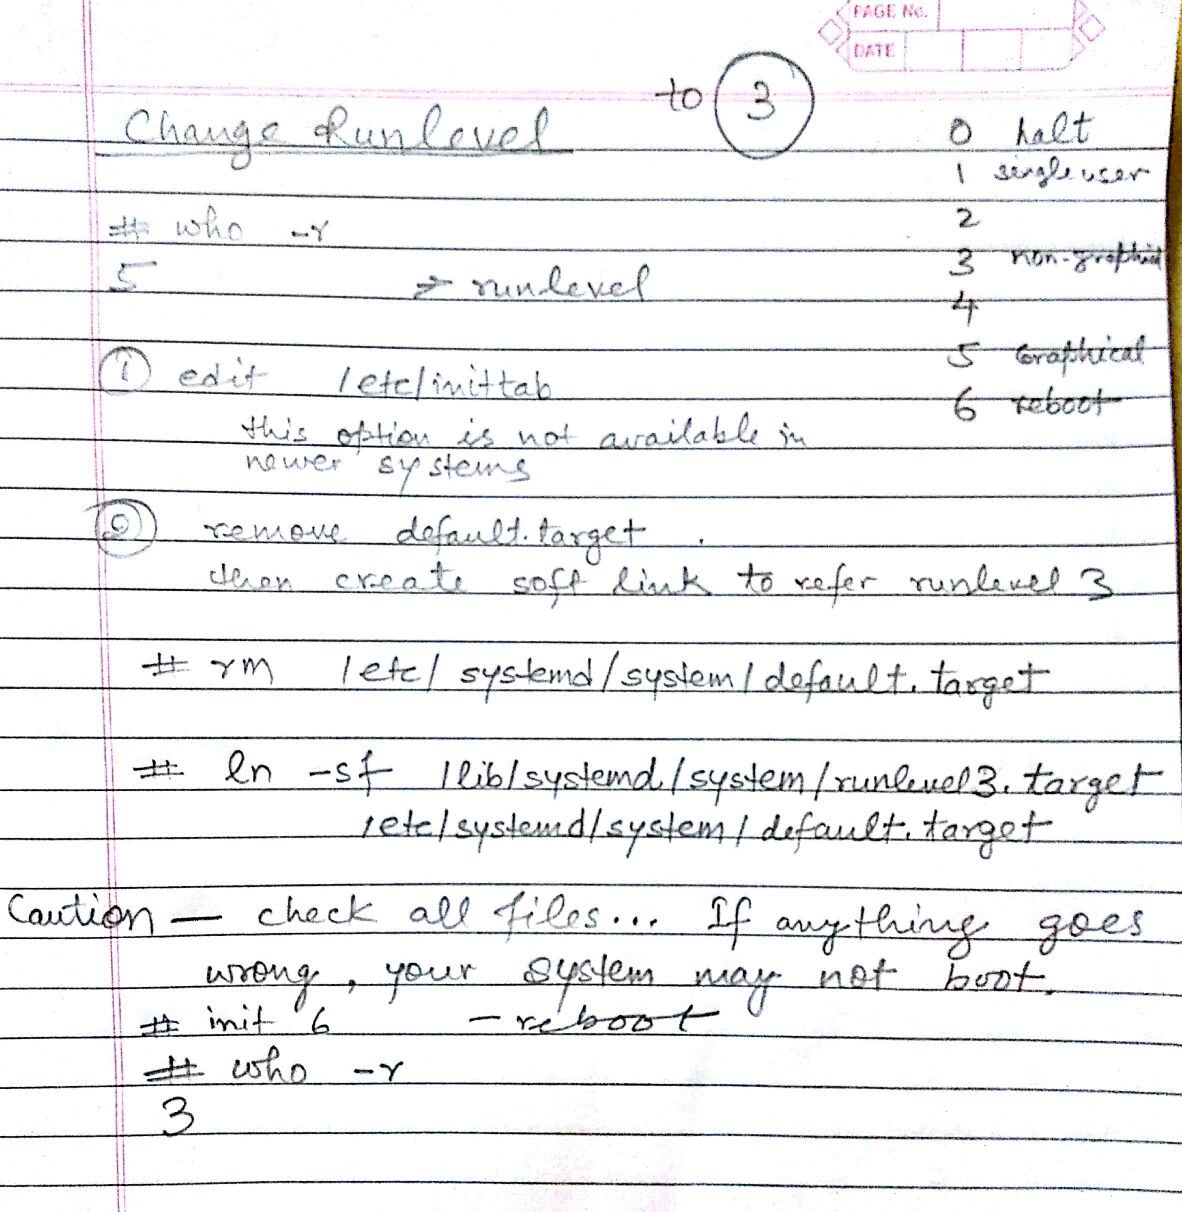 PAGE No.
DATE
to 3
Change Runlevel
0 halt
1 single user
2
3 non-graphical
4
5 Graphical
6 reboot
# who -r
5 → runlevel
1 edit /etc/inittab
this option is not available in
newer systems
2 remove default.target .
then create soft link to refer runlevel 3
# rm /etc/systemd/system/default.target
# ln -sf /lib/systemd/system/runlevel3.target
/etc/systemd/system/default.target
Caution — check all files... If anything goes
wrong, your system may not boot.
# init 6 - reboot
# who -r
3